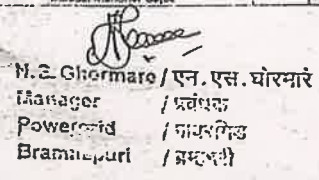 N.S. Ghormare / एन.एस.घोरमारे
Manager / प्रबंधक
Powergrid / पावरग्रिड
Bramhapuri